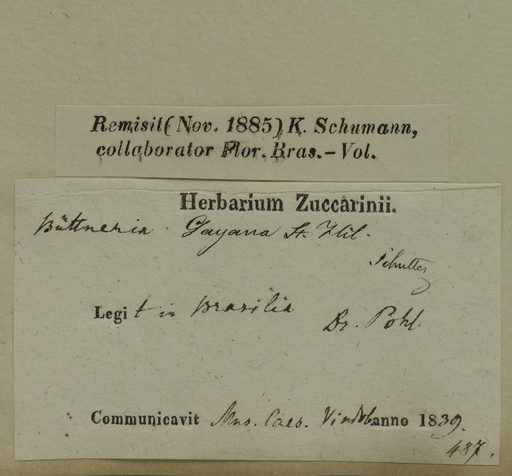 Remisit (Nov. 1885) K. Schumann,
collaborator Flor. Bras. – Vol.
Herbarium Zuccarinii.
Büttneria Gayana St. Hil.
Legit in Brasilia Dr. Pohl.
Communicavit Mus. Caes. Vindob. anno 1839.
437.